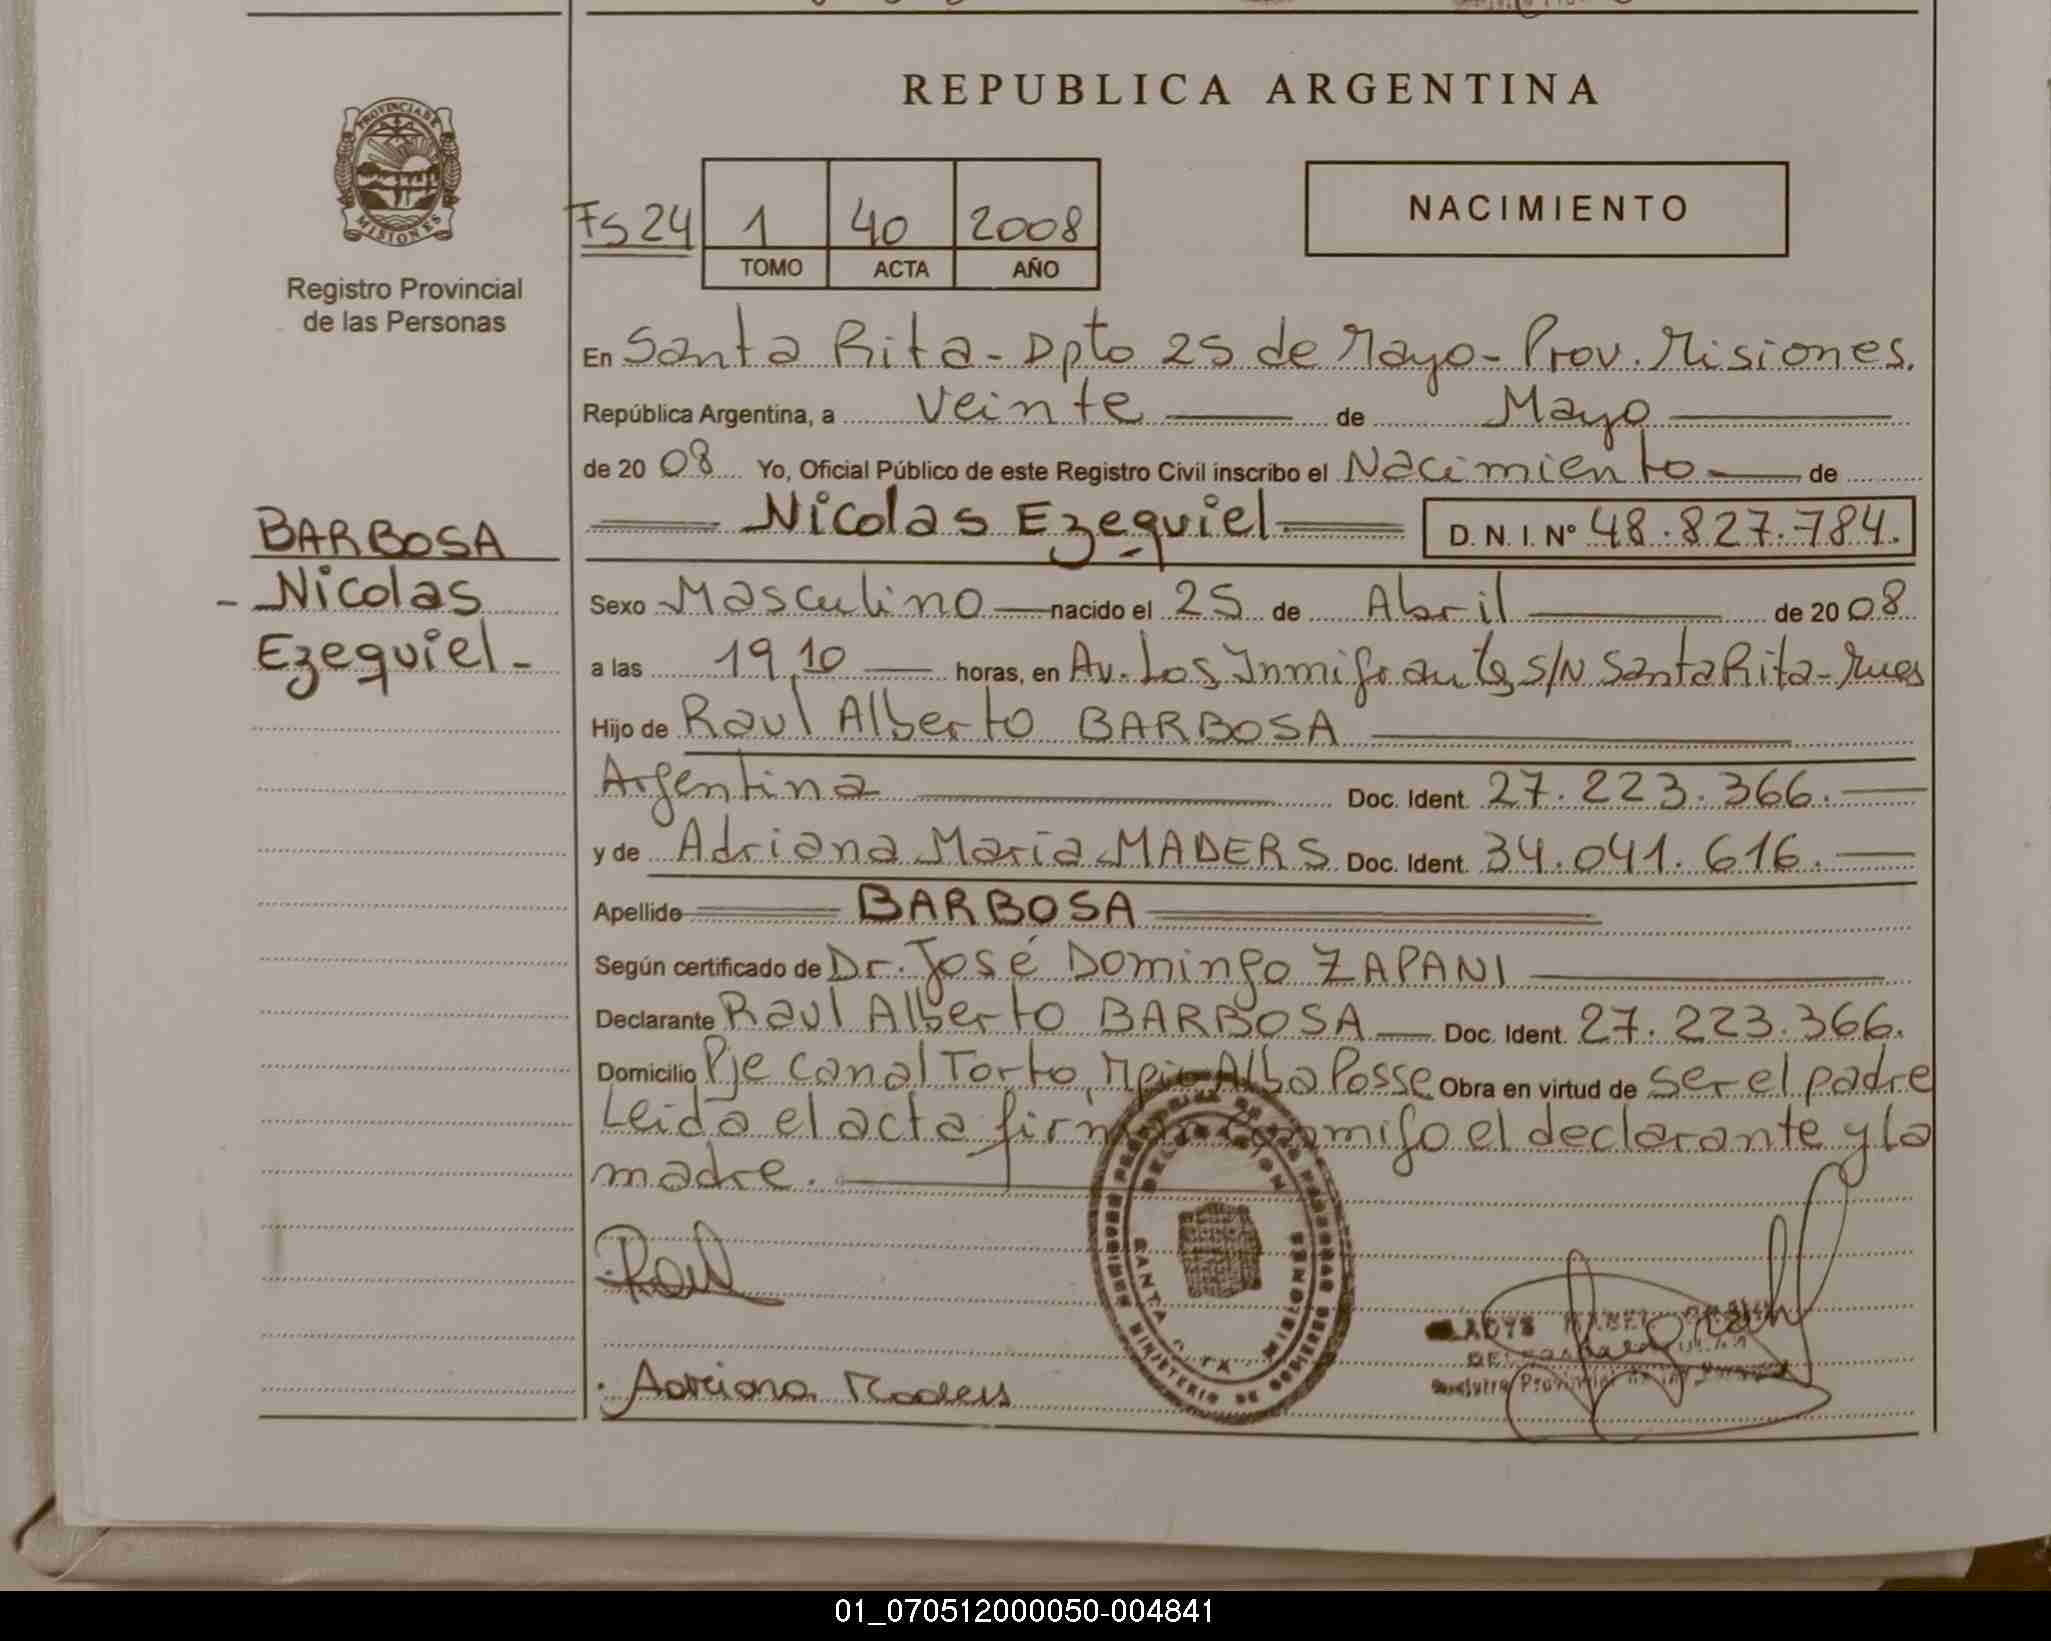 REPUBLICA ARGENTINA
PROVINCIA DE
MISIONES
Registro Provincial
de las Personas
Fs 24
1 40 2008
TOMO ACTA AÑO
NACIMIENTO
En Santa Rita - Dpto 25 de Mayo - Prov. Misiones.
República Argentina, a veinte de Mayo
de 20 08 Yo, Oficial Público de este Registro Civil inscribo el Nacimiento de
Nicolas Ezequiel D. N. I. Nº 48.827.784.
BARBOSA
- Nicolas
Ezequiel -
Sexo Masculino nacido el 25 de Abril de 20 08
a las 19,10 horas, en Av. Los Inmigrantes S/N Santa Rita - Mnes
Hijo de Raul Alberto BARBOSA
Argentina Doc. Ident. 27.223.366.
y de Adriana Maria MADERS Doc. Ident. 34.041.616.
Apellido BARBOSA
Según certificado de Dr. José Domingo ZAPANI
Declarante Raul Alberto BARBOSA Doc. Ident. 27.223.366.
Domicilio Pje Canal Torto, Mpio Alba Posse Obra en virtud de ser el padre
Leida el acta firman conmigo el declarante y la
madre.
Raul
Adriana Maders
SANTA RITA MISIONES
MINISTERIO DE GOBIERNO
01_070512000050-004841